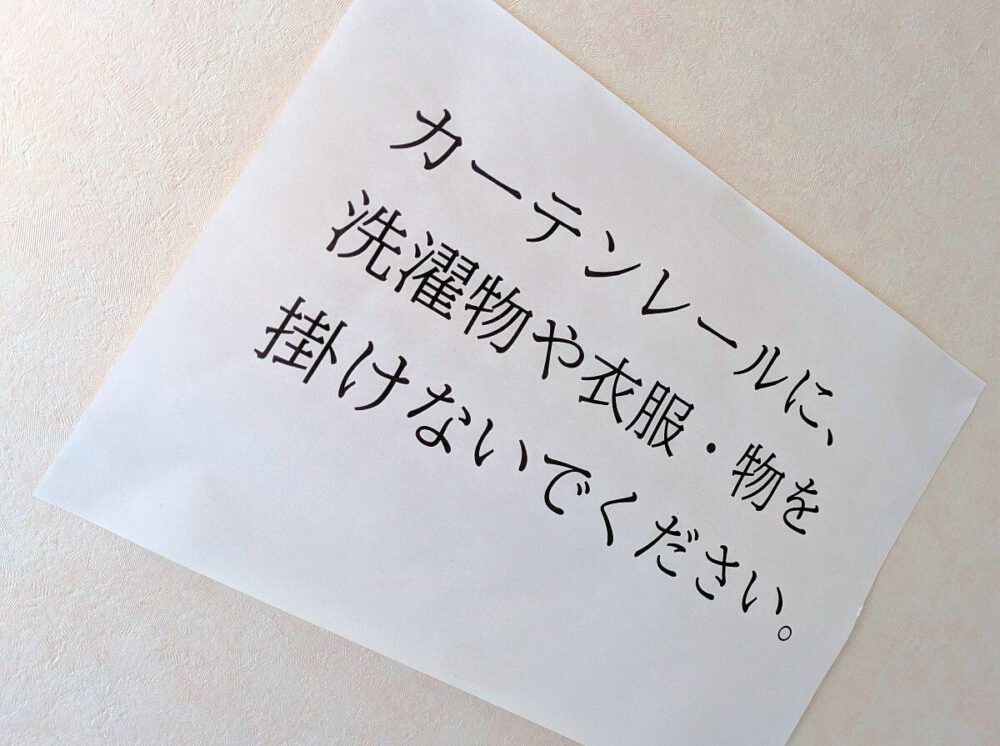 カーテンレールに、
洗濯物や衣服・物を
掛けないでください。